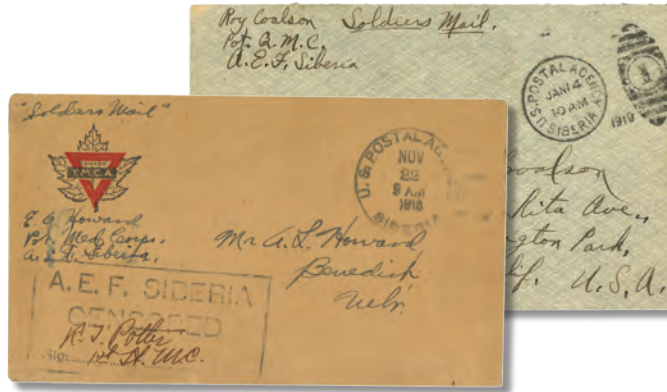 Roy Coalson Soldiers Mail.
Pvt. Q.M.C.
A.E.F. Siberia
U.S. POSTAL AGENCY
JAN 14
10 AM
SIBERIA
1919
Coalson
Rita Ave.,
ngton Park,
lif. U.S.A.
"Soldiers Mail"
Y.M.C.A.
E. A. Howard
Pvt. Med. Corps.
A.E.F. Siberia.
U.S. POSTAL AG
NOV
22
9 AM
1918
SIBERIA
Mr. A. L. Howard
Benedict
Nebr.
A.E.F. SIBERIA
CENSORED
Potter
1st Lt. M.C.